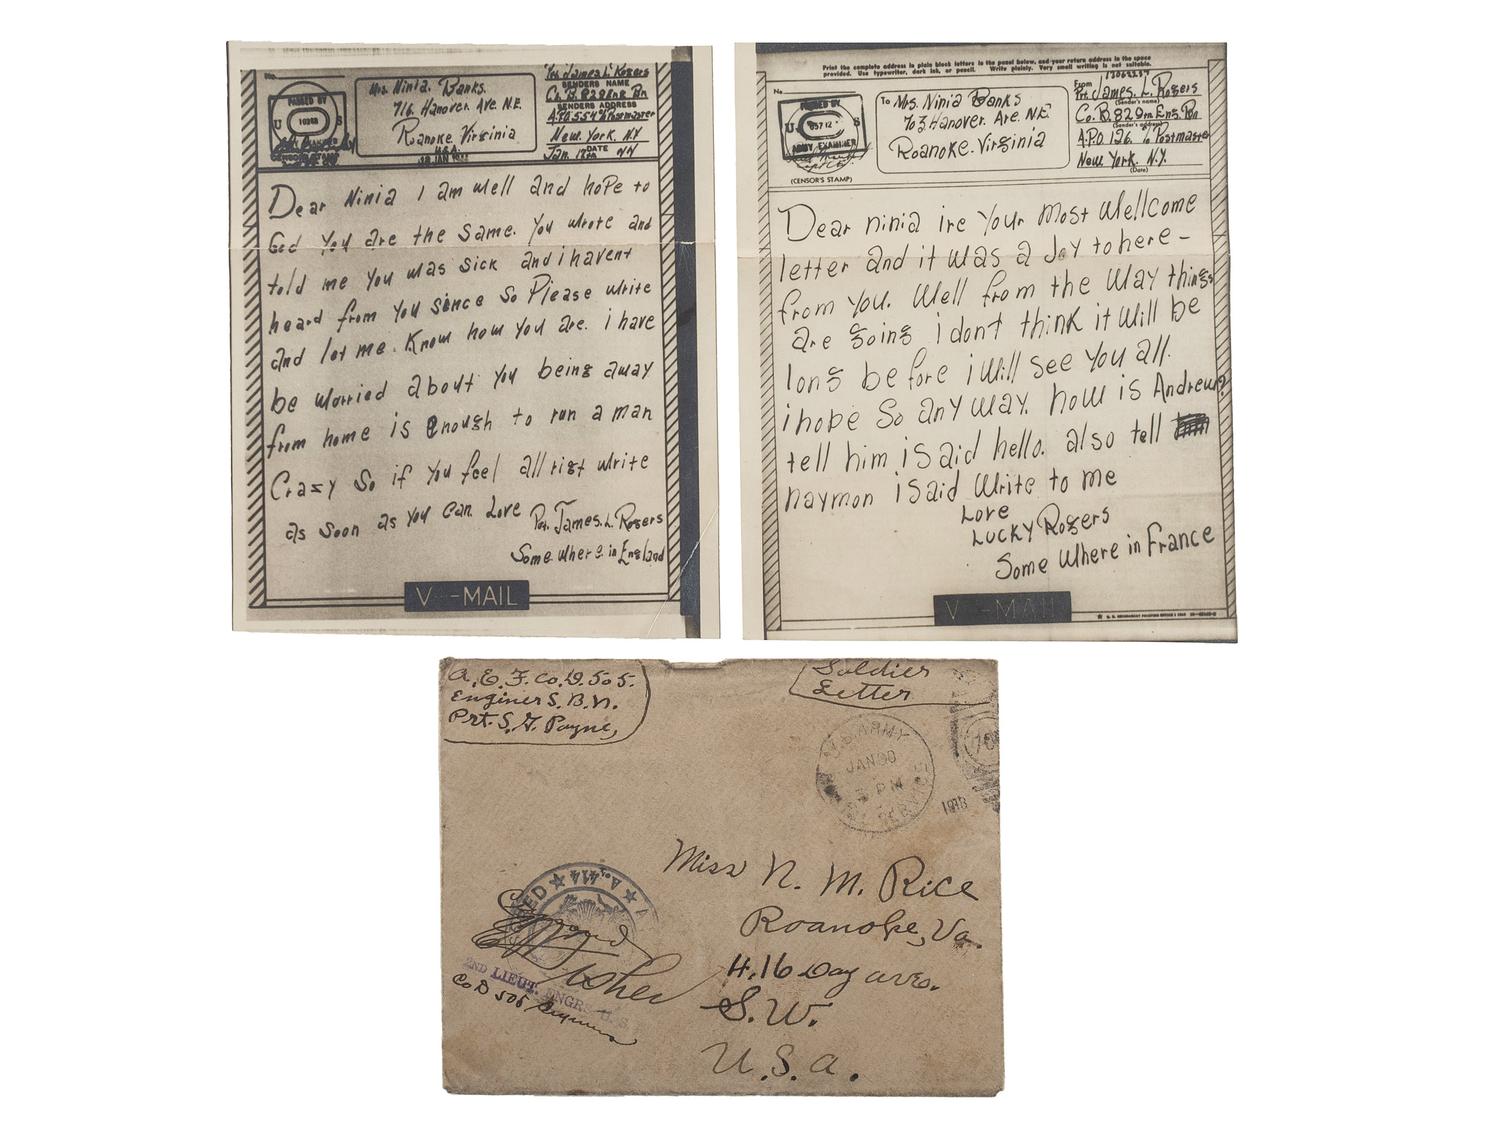 Mrs. Ninia. Banks.
716. Hanover. Ave. N.E.
Roanoke. Virginia
U.S.A.
Pvt. James. L. Rogers
SENDERS NAME
Co. B. 829
SENDERS ADDRESS
A.P.O. 554 % Postmaster
New. York. N.Y
Jan. 12th DATE
PASSED BY
U S
Dear Ninia I am well and hope to
God You are the same. You wrote and
told me You was sick and i havent
heard from You sence So Please write
and let me. Know how You are. i have
be worried about You being away
from home is enough to run a man
Crazy So if You feel all right write
as soon as You can Love
Pvt. James. L. Rogers
Some. where. in England
V···-MAIL
Print the complete address in plain block letters in the panel below, and your return address in the space
provided. Use typewriter, dark ink, or pencil. Write plainly. Very small writing is not suitable.
No.
PASSED BY
U S
ARMY EXAMINER
(CENSOR'S STAMP)
To Mrs. Ninia Banks
703 Hanover. Are. N.E
Roanoke. Virginia
From
Pvt. James. L. Rogers
(Sender's name)
Co. B. 829th Eng. Bn.
(Sender's address)
A.P.O. 126. % Postmaster
New York. N.Y.
(Date)
Dear ninia ire Your most Wellcome
letter and it was a Joy to here -
from You. Well from the way things
are going i dont think it will be
long before i will see You all.
i hope So any way. how is Andrew?
tell him i Said hello. also tell
haymon i Said Write to me
Love
Lucky Rogers
Some Where in France
V···-MAIL
A. E. F. Co. D. 505.
Engineers. B. N.
Prt. S. F. Payne,
Soldier
Letter
U.S. ARMY
JAN
PM
1918
Miss N. M. Rice
Roanoke, Va.
416 Day aveo.
S. W.
U. S. a.
A. 4414
Fisher
2ND LIEUT. ENGRS U.S.
Co D 505 Engineers